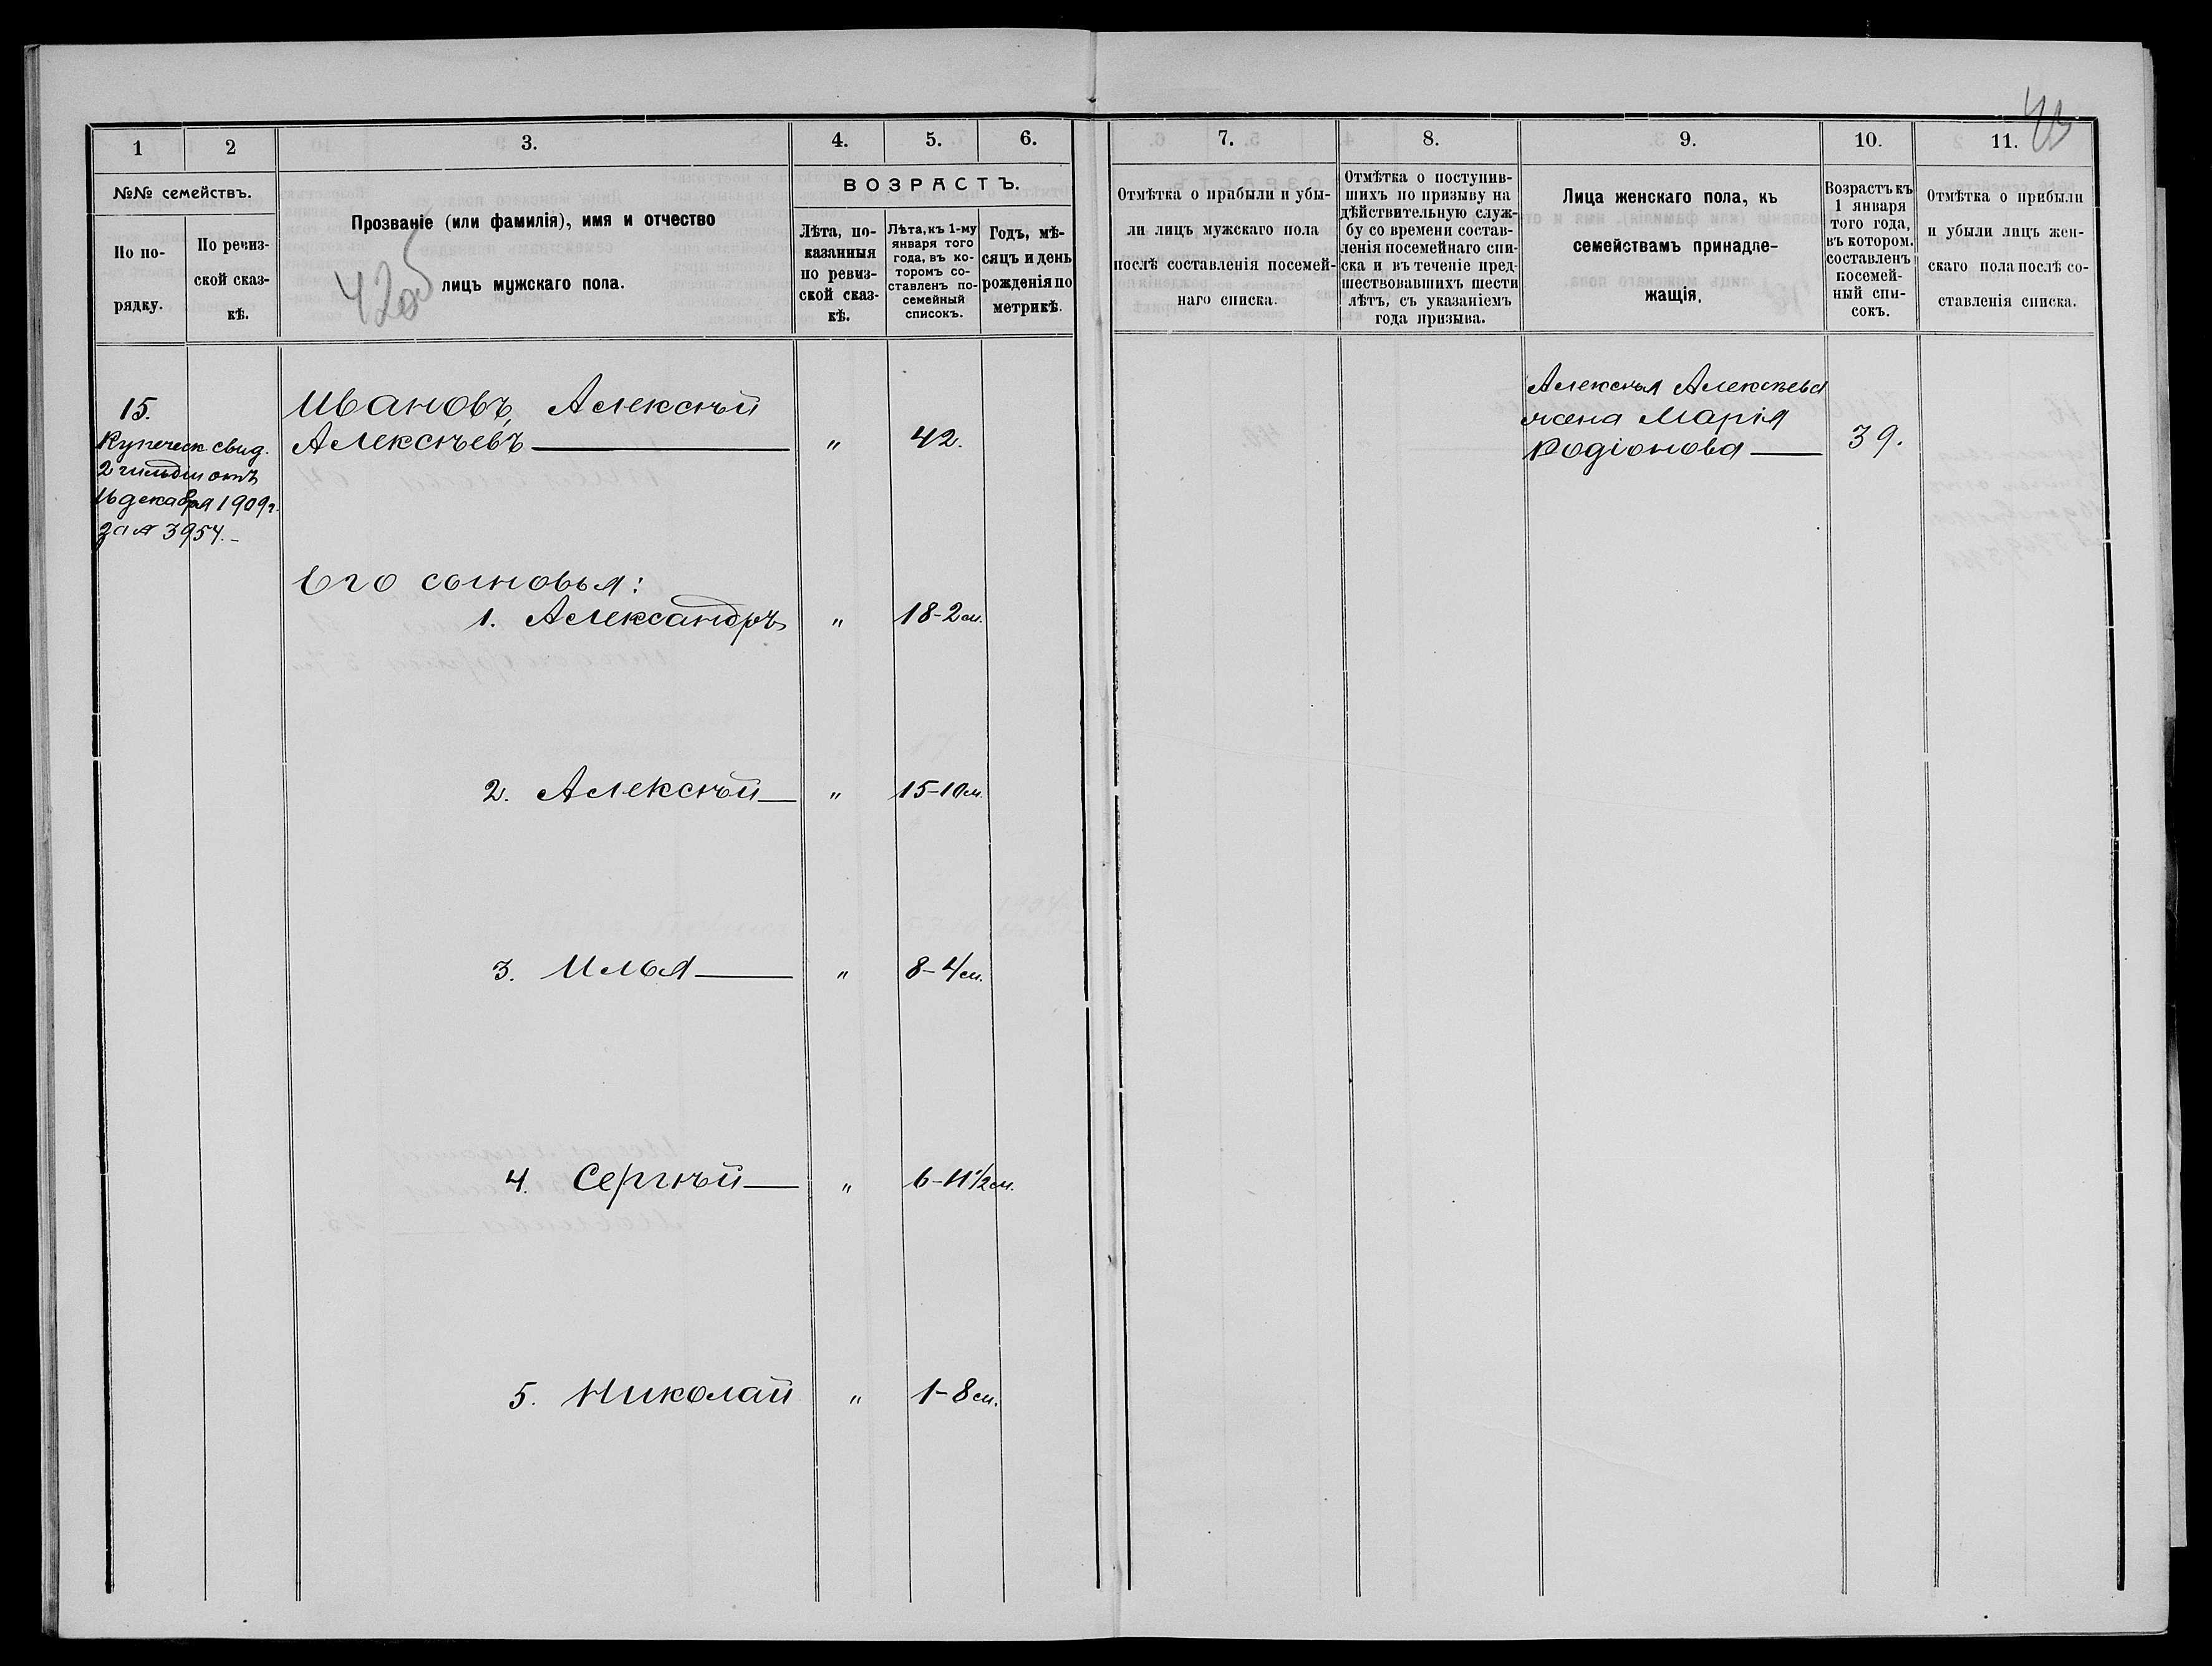 43
1
2
3.
4.
5.
6.
7.
8.
9.
10.
11.
№№ семействъ.
По по-
рядку.
По ревиз-
ской сказ-
кѣ.
Прозваніе (или фамилія), имя и отчество
лицъ мужского пола.
ВОЗРАСТЪ.
Лѣта, по-
казанныя
по ревиз-
ской сказ-
кѣ.
Лѣта, къ 1-му
января того
года, въ ко-
торомъ со-
ставленъ по-
семейный
списокъ.
Годъ, мѣ-
сяцъ и день
рожденія по
метрикѣ.
Отмѣтка о прибыли и убы-
ли лицъ мужскаго пола
послѣ составленія посемей-
наго списка.
Отмѣтка о поступив-
шихъ по призыву на
дѣйствительную служ-
бу со времени состав-
ленія посемейнаго спи-
ска и въ теченіе пред-
шествовавшихъ шести
лѣтъ, съ указаніемъ
года призыва.
Лица женскаго пола, къ
семействамъ принадле-
жащія.
Возрастъ къ
1 января
того года,
въ котором.
составленъ
посемей-
ный спи-
сокъ.
Отмѣтка о прибыли
и убыли лицъ жен-
скаго пола послѣ со-
ставленія списка.
15.
Купеческ свид.
2 гильдіи отъ
16 декабря 1909 г.
за № 3954.
Ивановъ, Алексѣй
Алексѣевъ " 42.
Алексѣя Алексѣева
жена Марія
Родіонова 39.
Его сыновья:
1. Александръ " 18-2 м.
2. Алексѣй " 15-10 м.
3. Илья " 8-4 м.
4. Сергѣй " 6-11½ м.
5. Николай " 1-8 м.